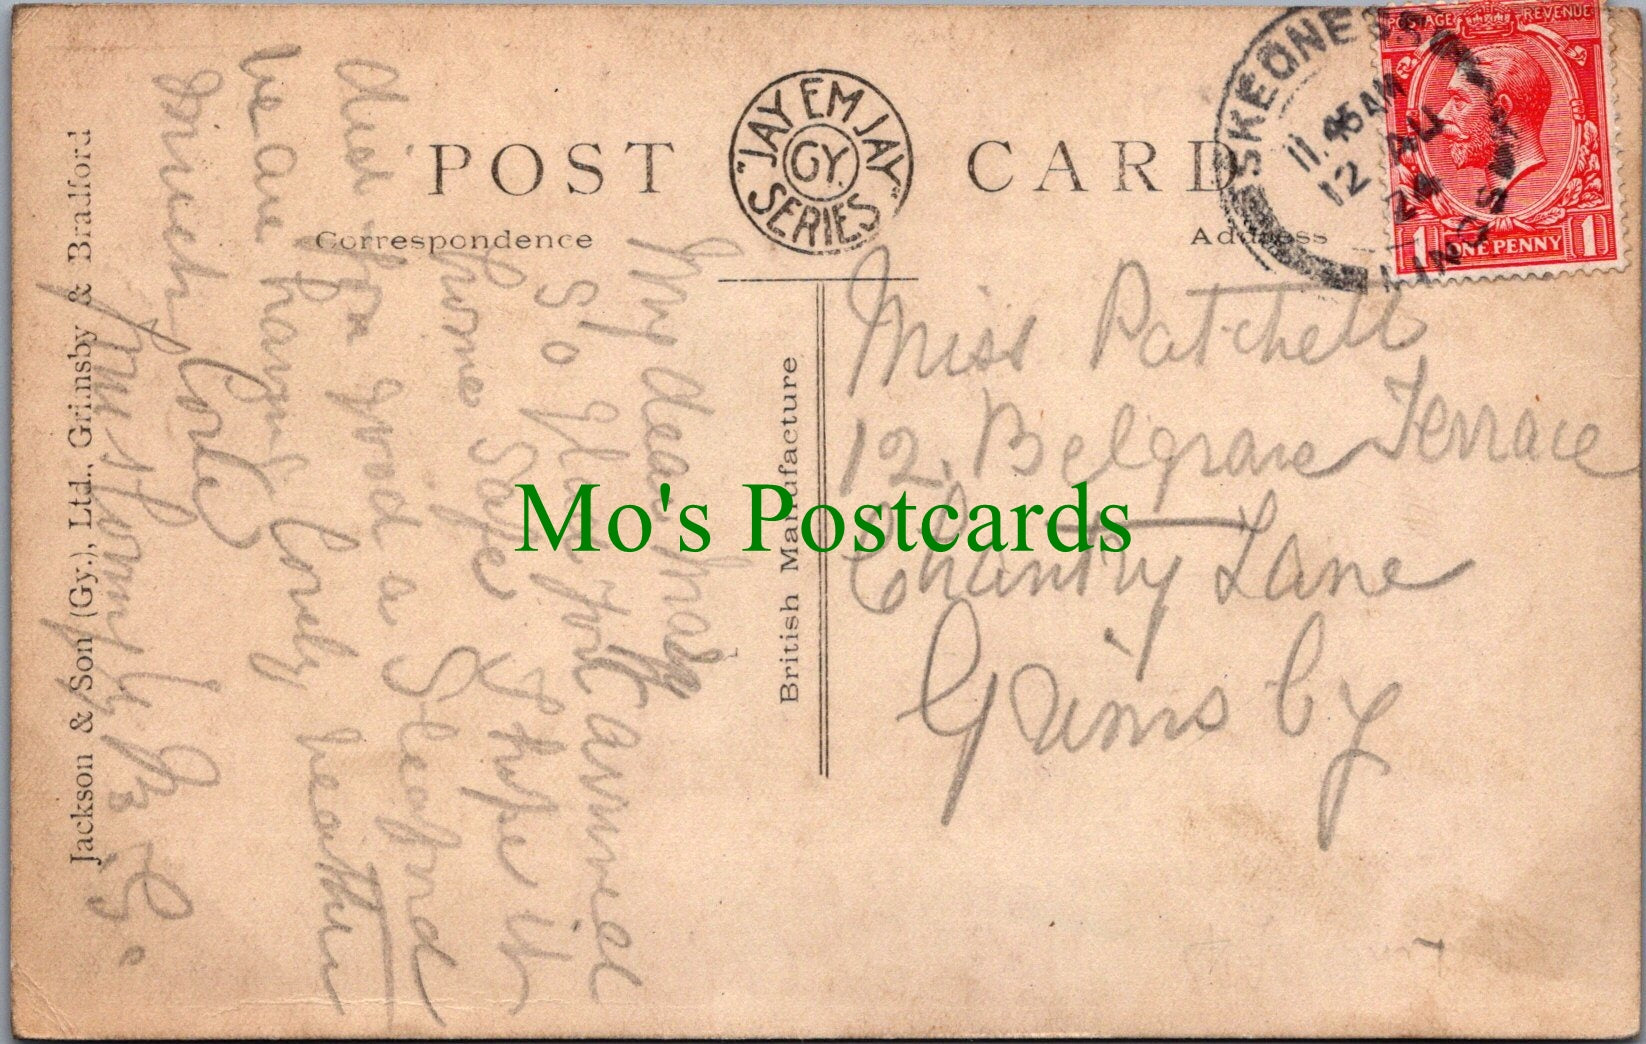 POST CARD
"JAY EM JAY" SERIES
GY.
Correspondence
Address
SKEGNESS
11.45 AM
12 AU
24
LINCS
POSTAGE REVENUE
1 ONE PENNY 1
British Manufacture
Jackson & Son (Gy.), Ltd., Grimsby & Bradford
Mo's Postcards
Miss Patchett
12, Belgrave Terrace
Chantry Lane
Grimsby
My dear
So glad you arrived
home safe & hope it
did you good a Sleaford
we are having lovely weather
much love